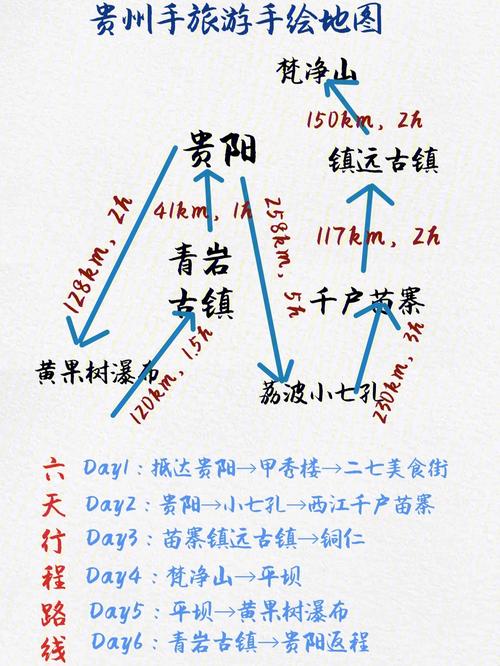 贵州手旅游手绘地图
梵净山
150km，2h
贵阳
镇远古镇
128km，2h
41km，1h
258km，5h
117km，2h
青岩
古镇
千户苗寨
黄果树瀑布
120km，1.5h
荔波小七孔
230km，3h
六天行程路线
Day1：抵达贵阳→甲秀楼→二七美食街
Day2：贵阳→小七孔→西江千户苗寨
Day3：苗寨镇远古镇→铜仁
Day4：梵净山→平坝
Day5：平坝→黄果树瀑布
Day6：青岩古镇→贵阳返程